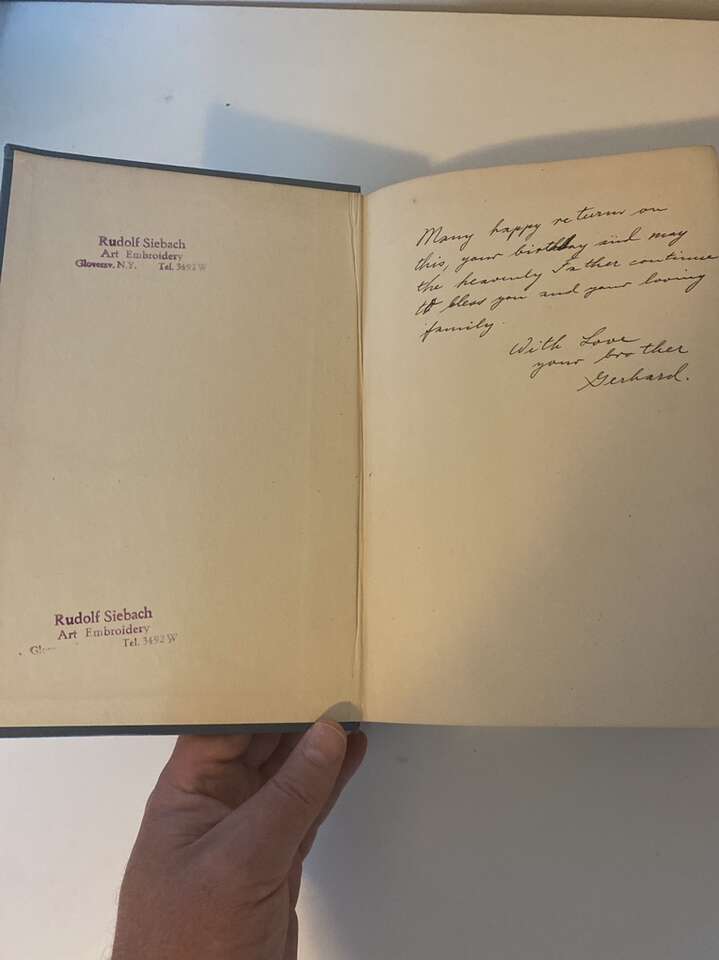 Rudolf Siebach
Art Embroidery
Gloversv, N.Y. Tel. 3492 W
Many happy return on
this, your birthday and may
the heavenly Father continue
to bless you and your loving
family.
With Love
your brother
Gerhard.
Rudolf Siebach
Art Embroidery
Tel. 3492 W